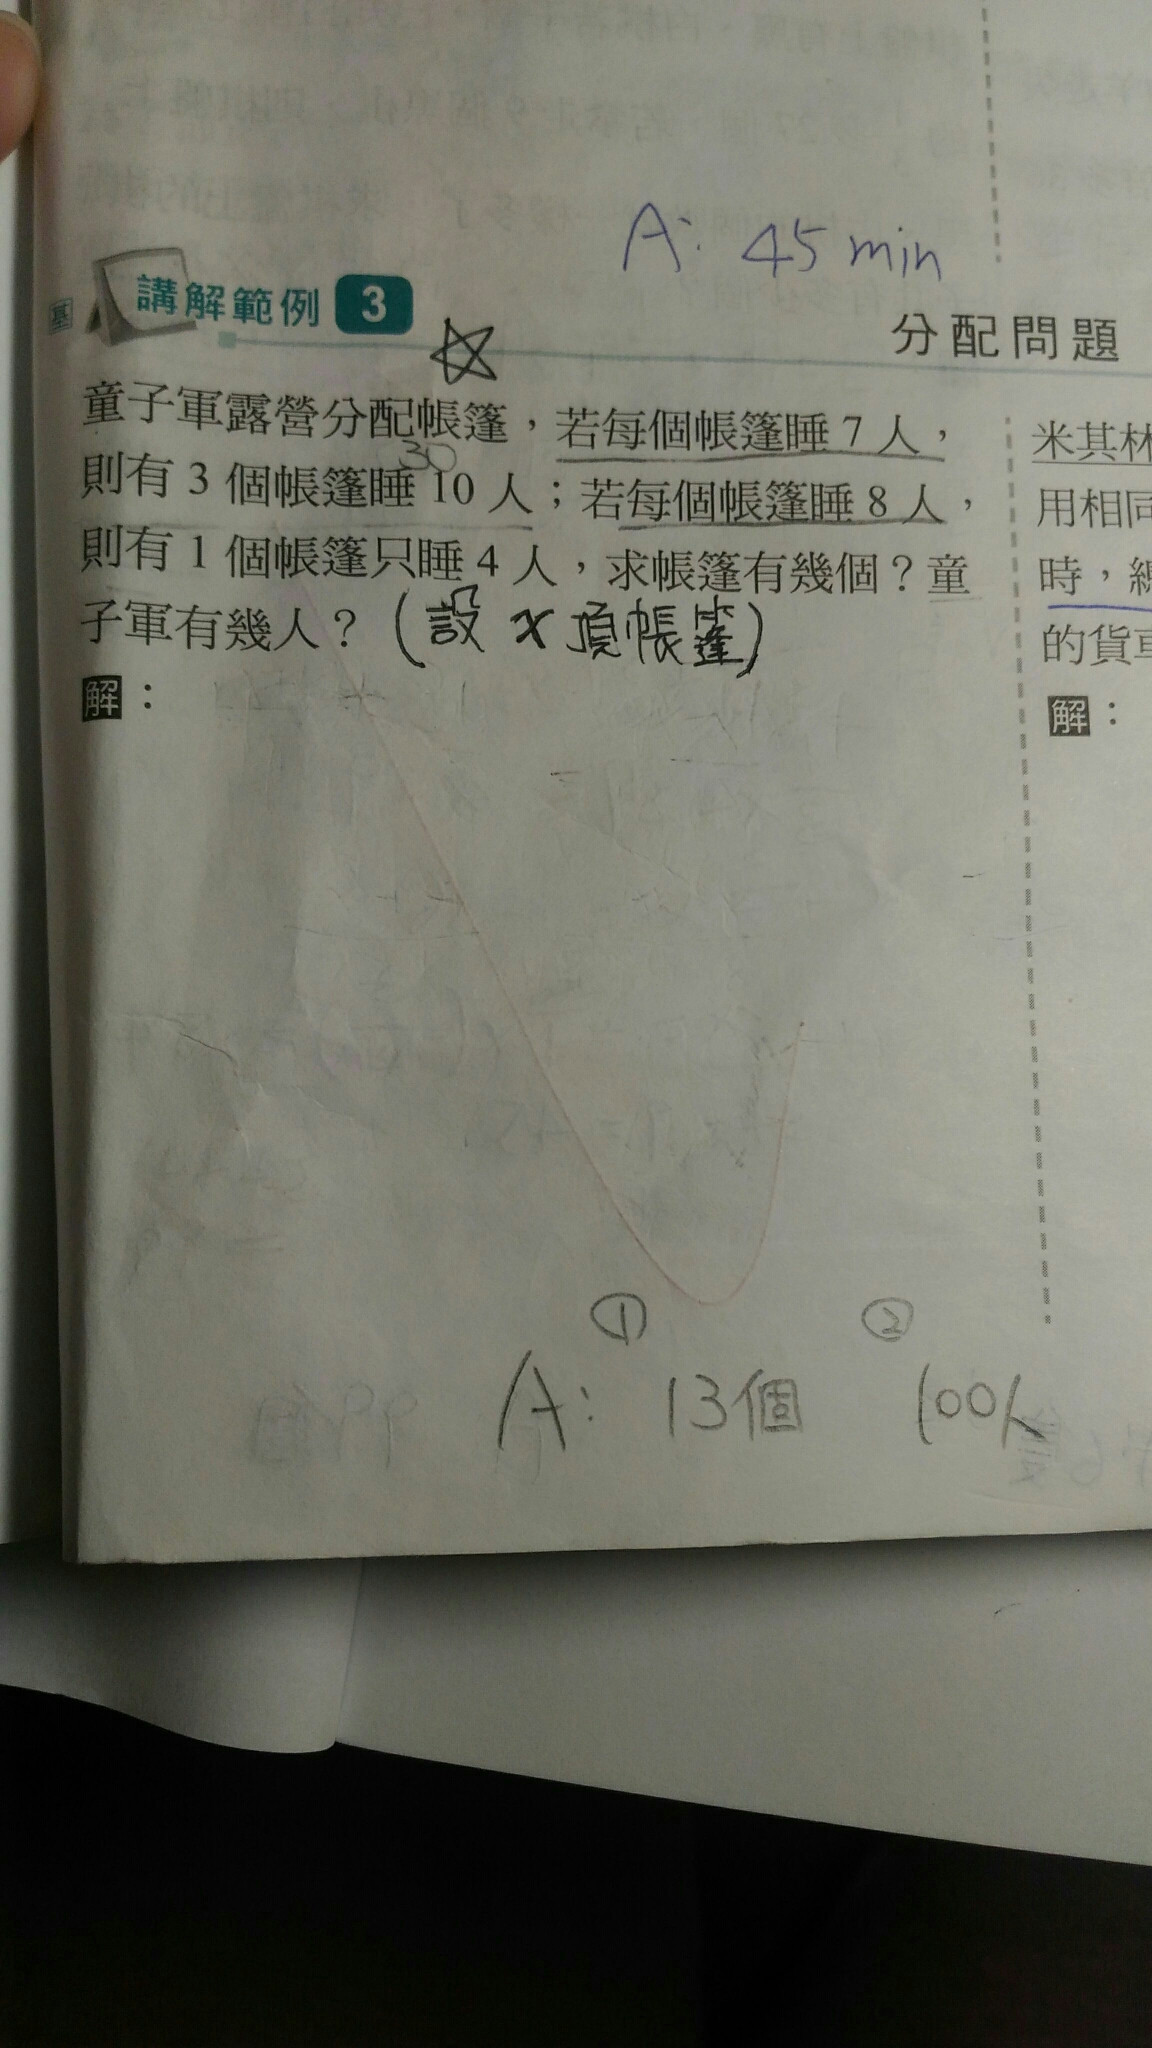 A: 45 min
基 講解範例 3
分配問題
童子軍露營分配帳篷，若每個帳篷睡 7 人，
30
則有 3 個帳篷睡 10 人；若每個帳篷睡 8 人，
則有 1 個帳篷只睡 4 人，求帳篷有幾個？童
子軍有幾人？(設 x 頂帳篷)
解：
① ②
A: 13個 100人
米其林
用相同
時，總
的貨車
解：